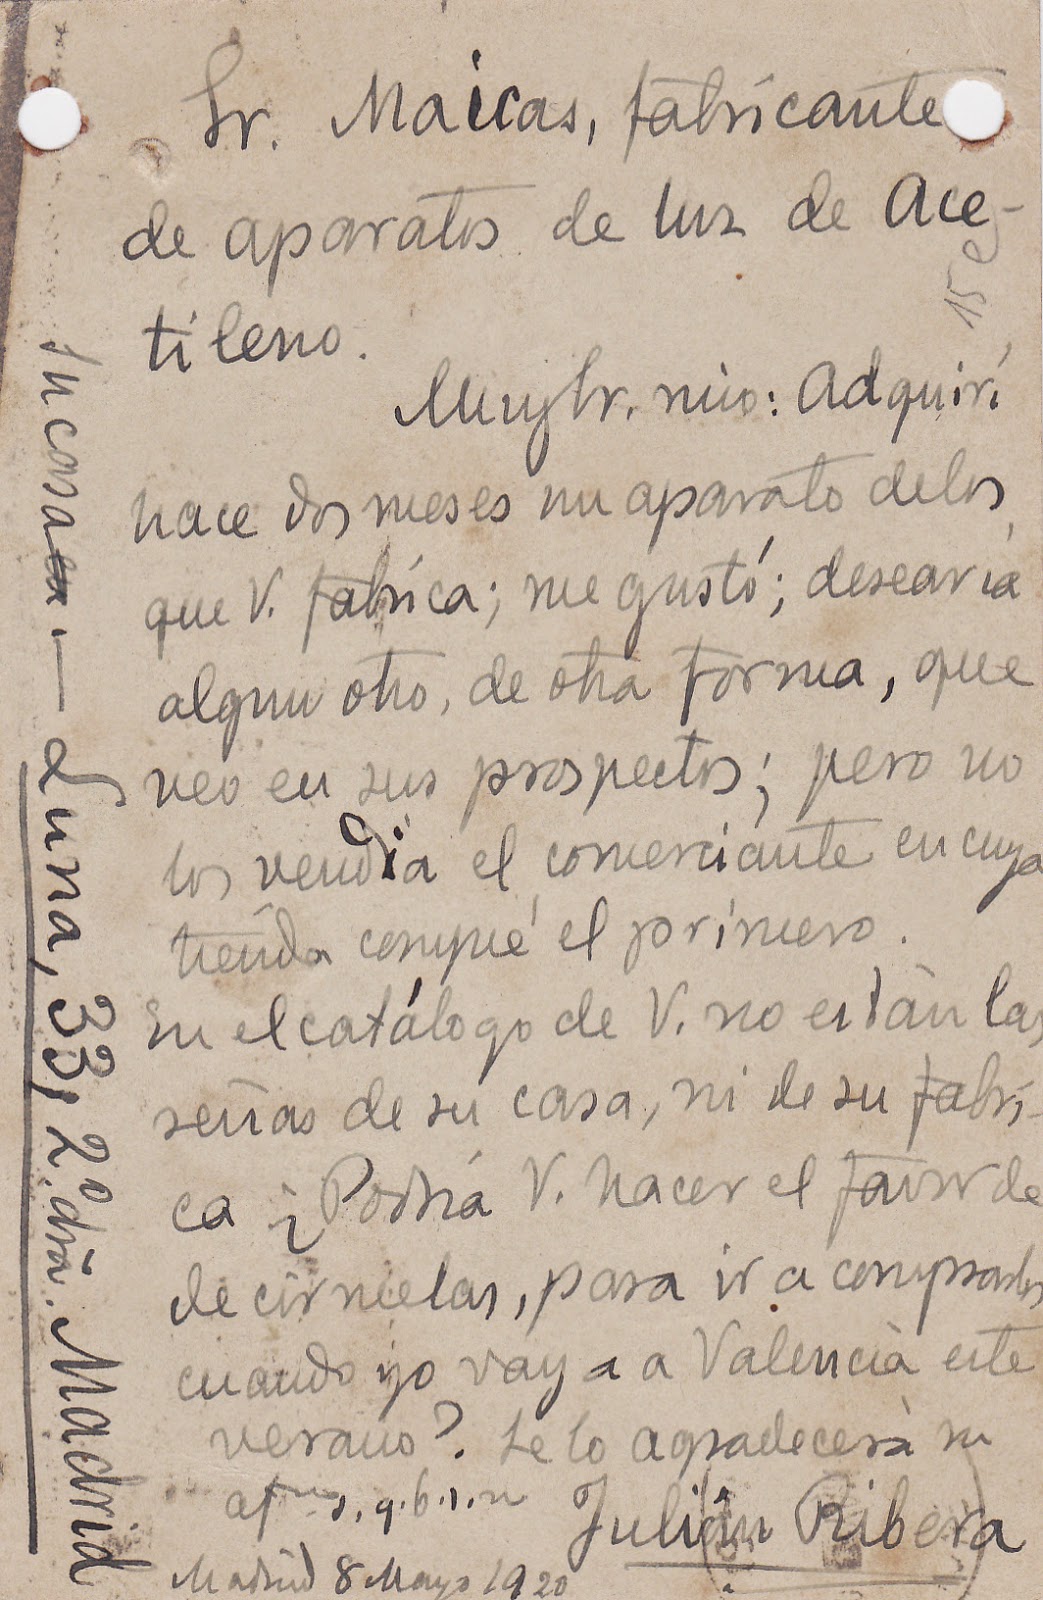 Sr. Maicas, fabricante
de aparatos de luz de Ace-
tileno.
Muy Sr. mio: Adquirí
hace dos meses un aparato de los
que V. fabrica; me gustó; desearía
algun otro, de otra forma, que
veo en sus prospectos; pero no
los vendía el comerciante en cuya
tienda compré el primero.
En el catálogo de V. no están las
señas de su casa, ni de su fábri-
ca ¿Podría V. hacer el favor de
decírmelas, para ir a comprarlos
cuando yo vaya a Valencia este
verano? Se lo agradecerá su
afmo s. q. b. s. m
Julián Ribera
Madrid 8 Mayo 1920
Su casa — Luna, 33, 2º dra. Madrid
15